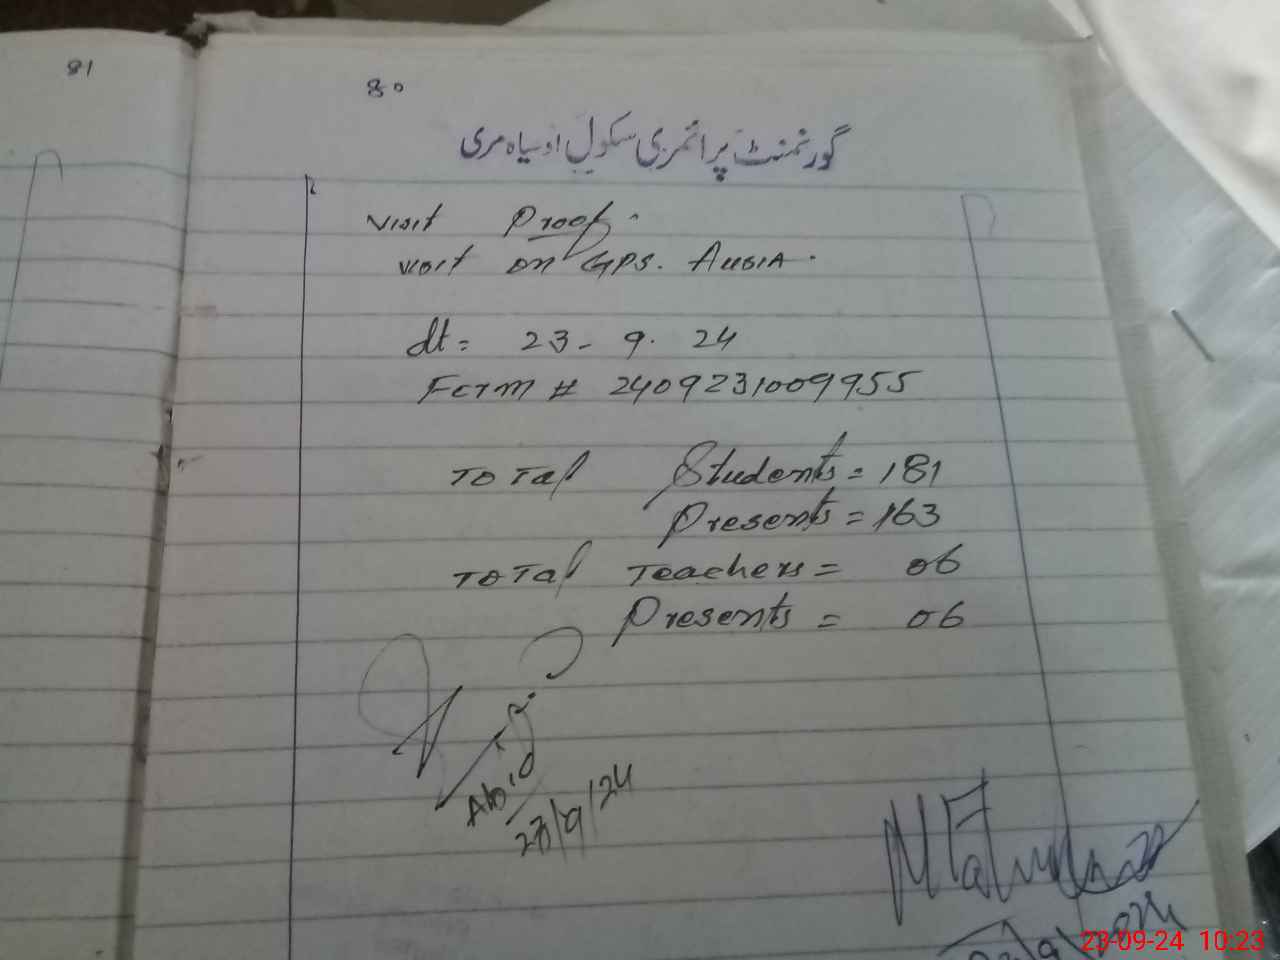 81
80
گورنمنٹ پرائمری سکول اوسیاہ مری
Visit Proof.
Visit on GPS. AUSIA.
dt= 23-9.24
Form # 2409231009955
TOTal Students = 181
Presents = 163
TOTal Teachers = 06
Presents = 06
Abid
23/9/24
23-09-24 10:23